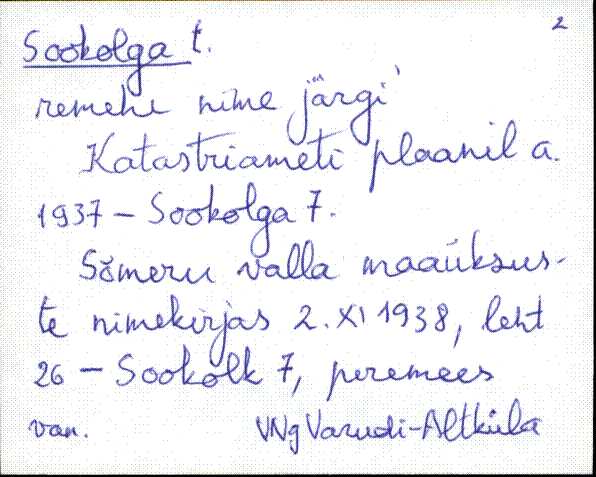 2
Sookolga t.
remehe nime järgi
Katastriameti plaanil a.
1937 – Sookolga 7.
Sõmeru valla maaüksus-
te nimekirjas 2. XI 1938, leht
26 – Sookolk 7, peremees
van. VNg Varudi-Altküla